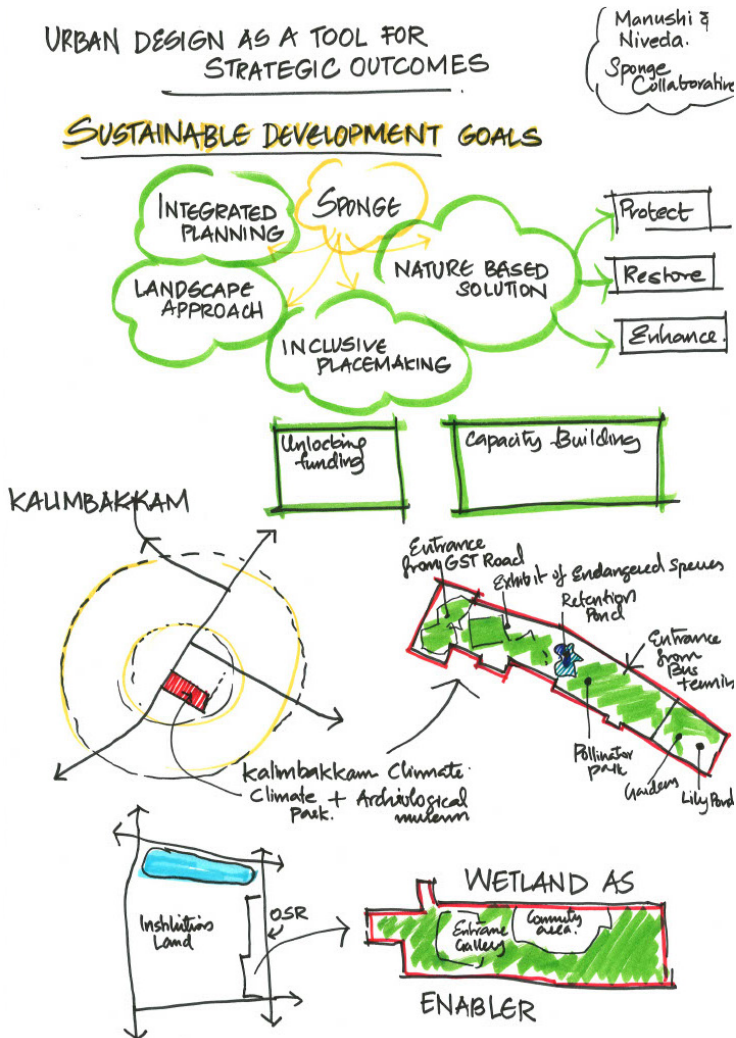 URBAN DESIGN AS A TOOL FOR
STRATEGIC OUTCOMES
Manushi &
Niveda.
Sponge
Collaborative
SUSTAINABLE DEVELOPMENT GOALS
INTEGRATED
PLANNING
SPONGE
NATURE BASED
SOLUTION
LANDSCAPE
APPROACH
INCLUSIVE
PLACEMAKING
Protect
Restore
Enhance.
Unlocking
funding
Capacity Building
KALIMBAKKAM
Entrance
from GST Road
Exhibit of Endangered Species
Retention
Pond
Entrance
from
Bus
Pollinator
park
Garden
Lily Pond
Kalimbakkam Climate
Climate + Archiological
Park. museum
Institutions
Land
OSR
WETLAND AS
Entrance
Gallery
area.
ENABLER